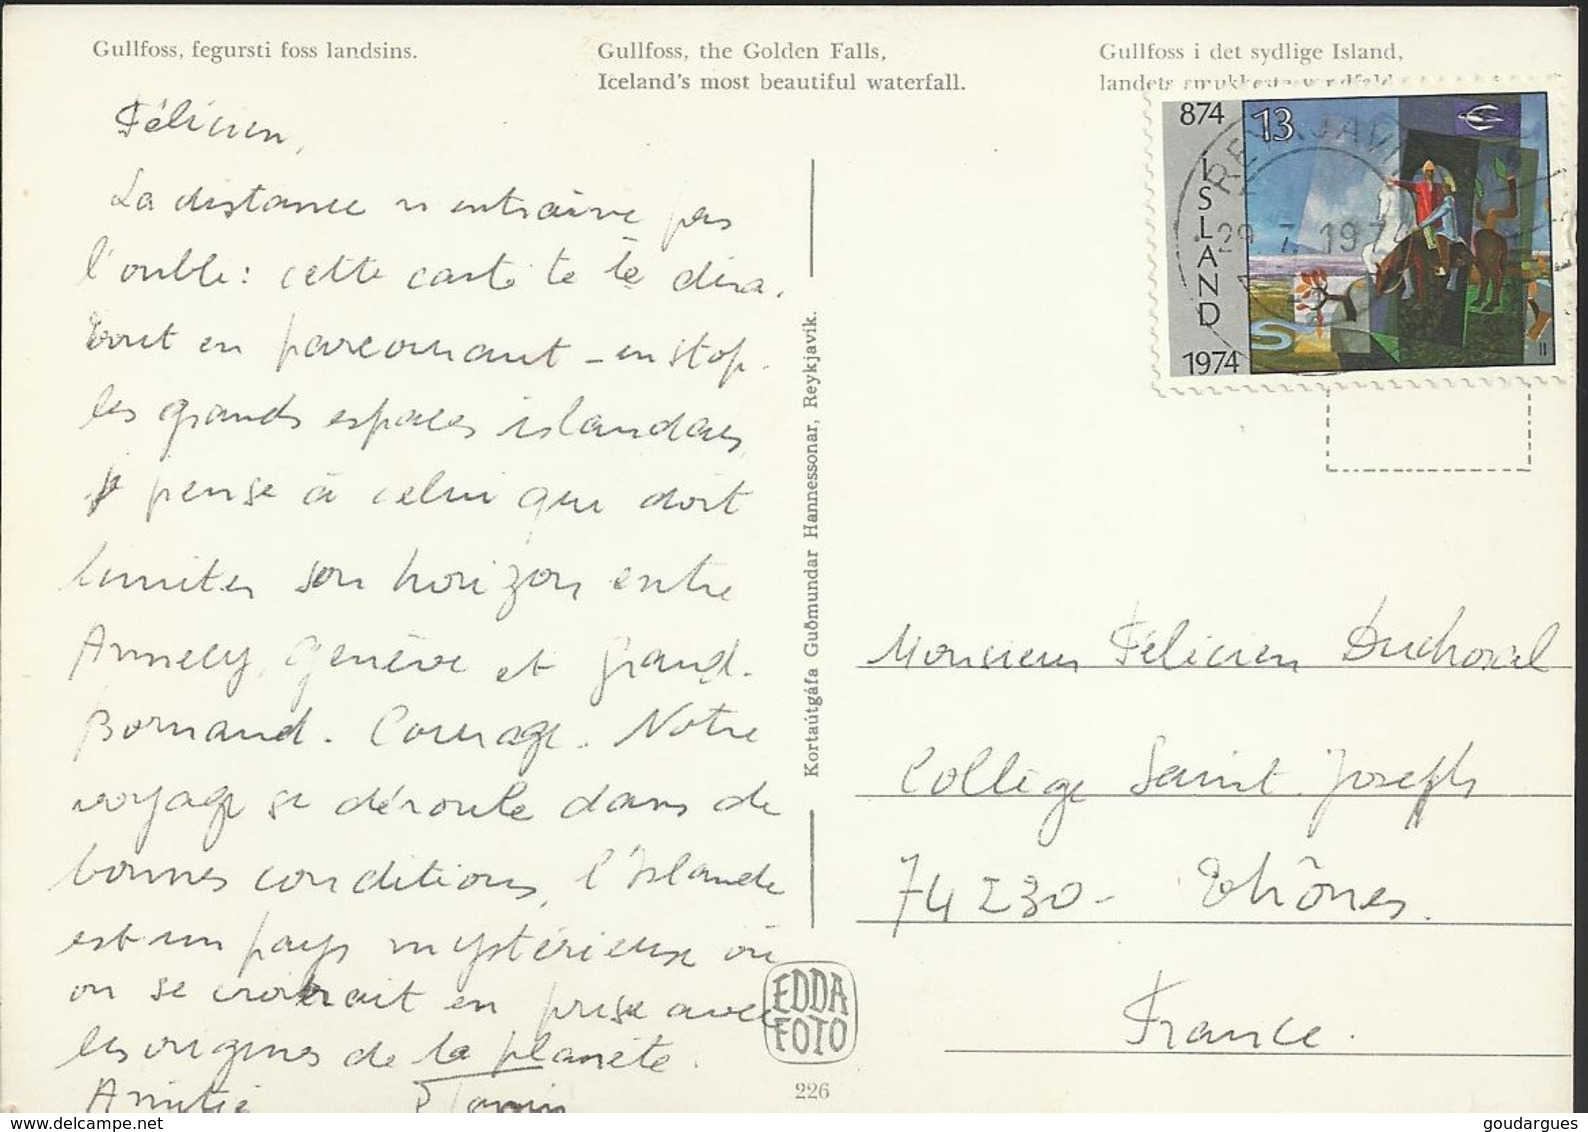 Gullfoss, fegursti foss landsins.
Gullfoss, the Golden Falls,
Iceland's most beautiful waterfall.
Gullfoss i det sydlige Island,
landets smukkeste vandfald
Félicien,
La distance n'entraîne pas
l'oubli : cette carte te le dira.
Tout en parcourant - en stop -
les grands espaces islandais,
je pense à celui qui doit
limiter son horizon entre
Annecy, Genève et Grand-
Bornand. Courage. Notre
voyage se déroule dans de
bonnes conditions, l'Islande
est un pays mystérieux où
on se croirait en prise avec
les origines de la planète.
Amitié
Kortaútgáfa Guðmundar Hannessonar, Reykjavík.
EDDA
FOTO
226
874
13
ISLAND
1974
REYKJAVIK
29. 7. 1974
Monsieur Félicien Duchosal
Collège Saint Joseph
74230 - Thônes.
France.
goudargues